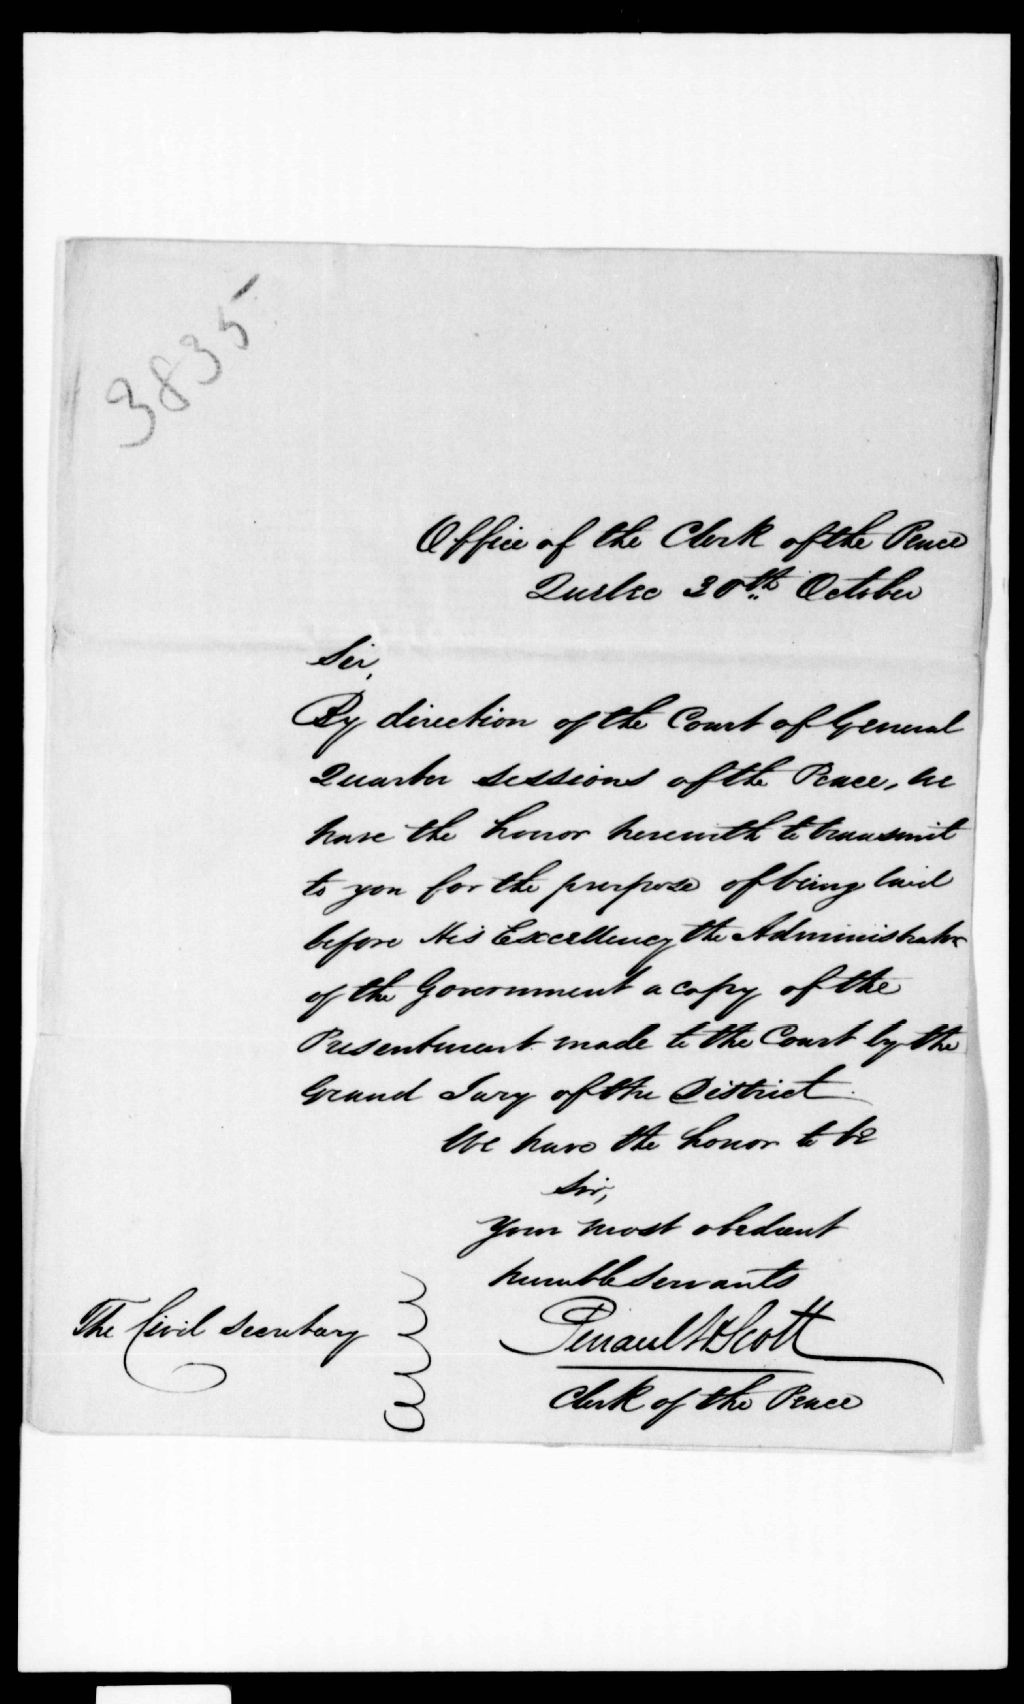 3835
Office of the Clerk of the Peace
Quebec 30th October
Sir,
By direction of the Court of General
Quarter sessions of the Peace, we
have the honor herewith to transmit
to you for the purpose of being laid
before His Excellency the Administrator
of the Government a copy of the
Presentment made to the Court by the
Grand Jury of the District.
We have the honor to be
Sir,
Your most obedient
humble servants
Perrault & Scott
Clerk of the Peace
The Civil Secretary